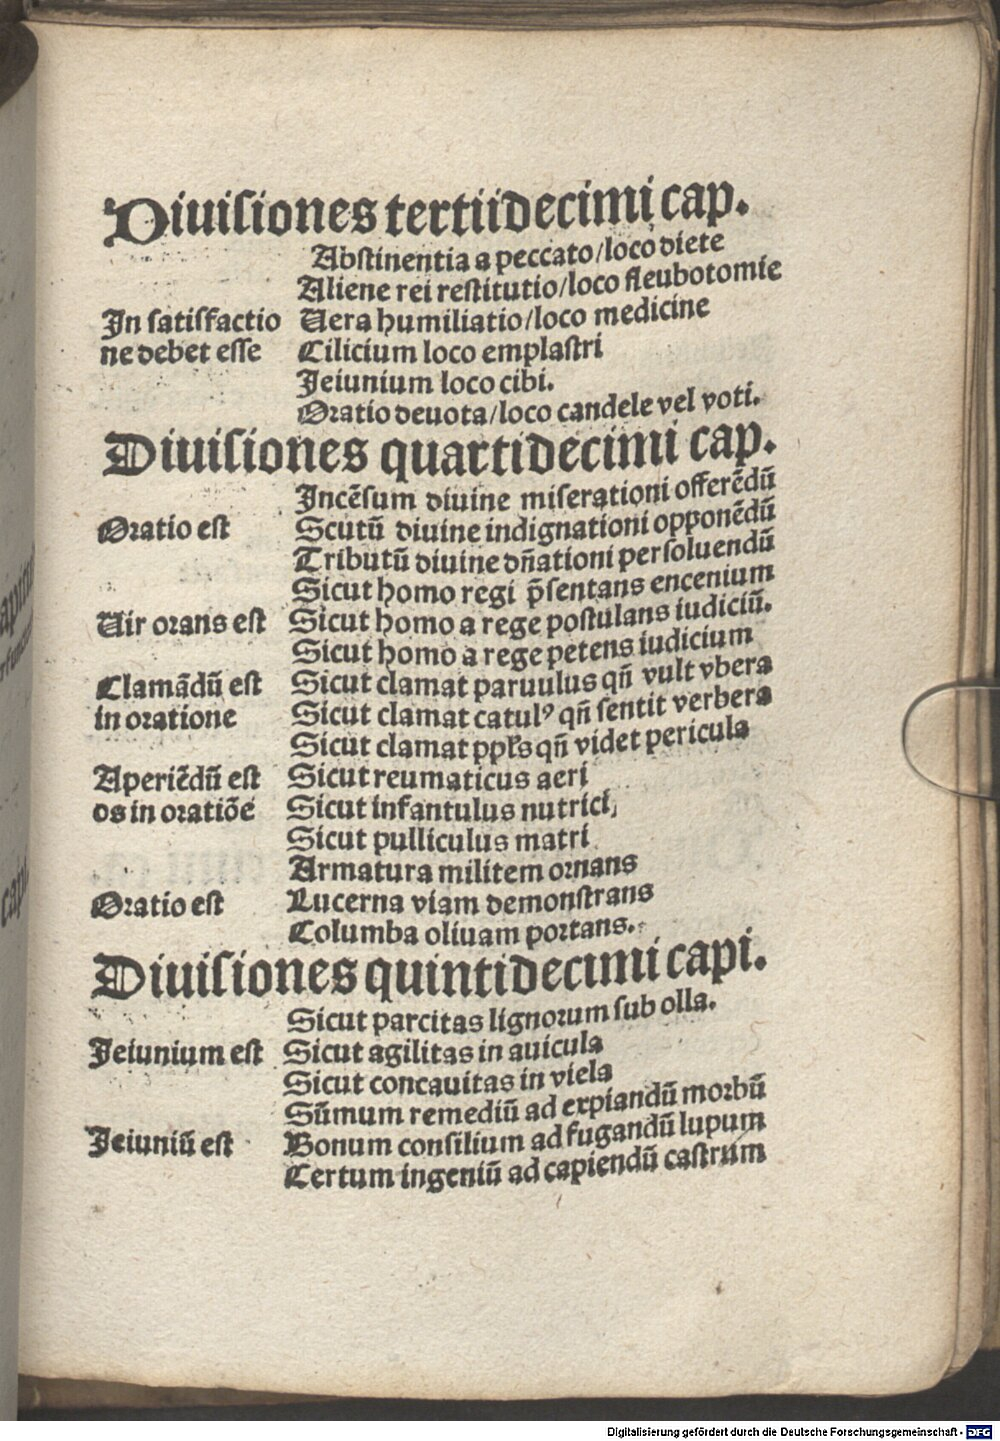 Diuisiones tertiidecimi cap.
Abstinentia a peccato/loco diete
Aliene rei restitutio/loco fleubotomie
In satisfactio Uera humiliatio/loco medicine
ne debet esse Cilicium loco emplastri
Jeiunium loco cibi.
Oratio deuota/loco candele vel voti.
Diuisiones quartidecimi cap.
Incēsum diuine miserationi offerēdū
Oratio est Scutū diuine indignationi opponēdū
Tributū diuine dn̄ationi persoluendū
Sicut homo regi p̄sentans encenium
Uir orans est Sicut homo a rege postulans iudiciū.
Sicut homo a rege petens iudicium
Clamādū est Sicut clamat paruulus qn̄ vult vbera
in oratione Sicut clamat catulꝰ qn̄ sentit verbera
Sicut clamat ppl̄s qn̄ videt pericula
Aperiēdū est Sicut reumaticus aeri
os in oratiōe Sicut infantulus nutrici,
Sicut pulliculus matri
Armatura militem ornans
Oratio est Lucerna viam demonstrans
Columba oliuam portans.
Diuisiones quintidecimi capi.
Sicut parcitas lignorum sub olla.
Jeiunium est Sicut agilitas in auicula
Sicut concauitas in viela
Sūmum remediū ad expiandū morbū
Jeiuniū est Bonum consilium ad fugandū lupum
Certum ingeniū ad capiendū castrum
Digitalisierung gefördert durch die Deutsche Forschungsgemeinschaft - DFG